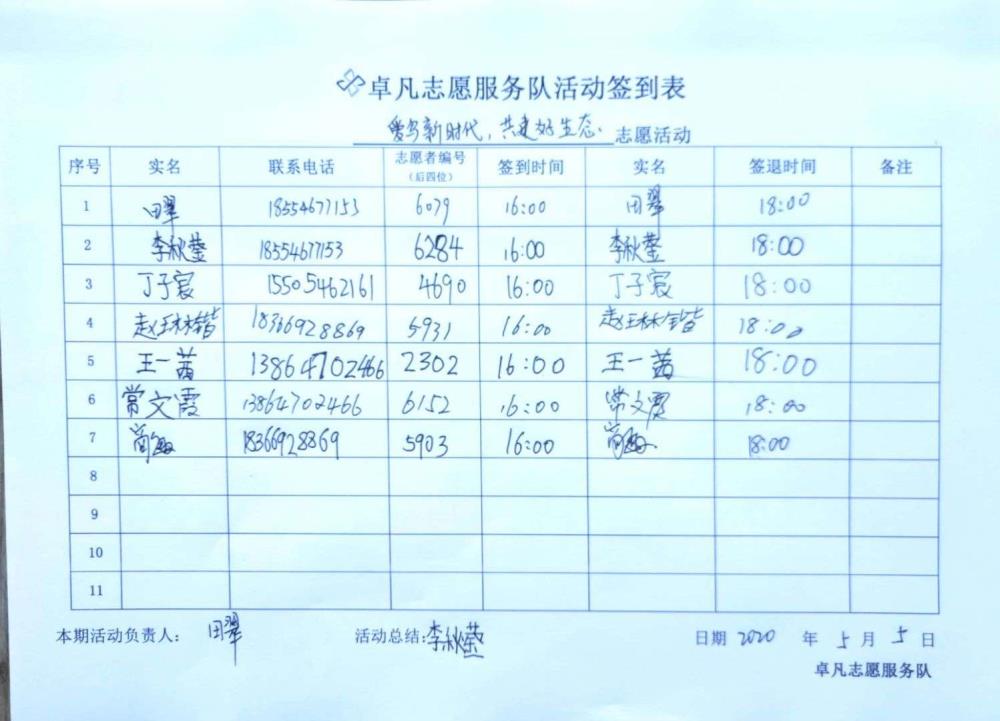 卓凡志愿服务队活动签到表
爱鸟新时代，共建好生态. 志愿活动
序号 实名 联系电话 志愿者编号（后四位） 签到时间 实名 签退时间 备注
1 田翠 18554677153 6079 16:00 田翠 18:00
2 李秋莹 18554677153 6284 16:00 李秋莹 18:00
3 丁子宸 15505462161 4690 16:00 丁子宸 18:00
4 赵琳锴 18366928869 5931 16:00 赵琳锴 18:00
5 王一茜 13864702466 2302 16:00 王一茜 18:00
6 常文霞 13864702466 6152 16:00 常文霞 18:00
7 18366928869 5903 16:00 18:00
8
9
10
11
本期活动负责人： 田翠 活动总结: 李秋莹 日期 2020 年 5 月 5 日
卓凡志愿服务队